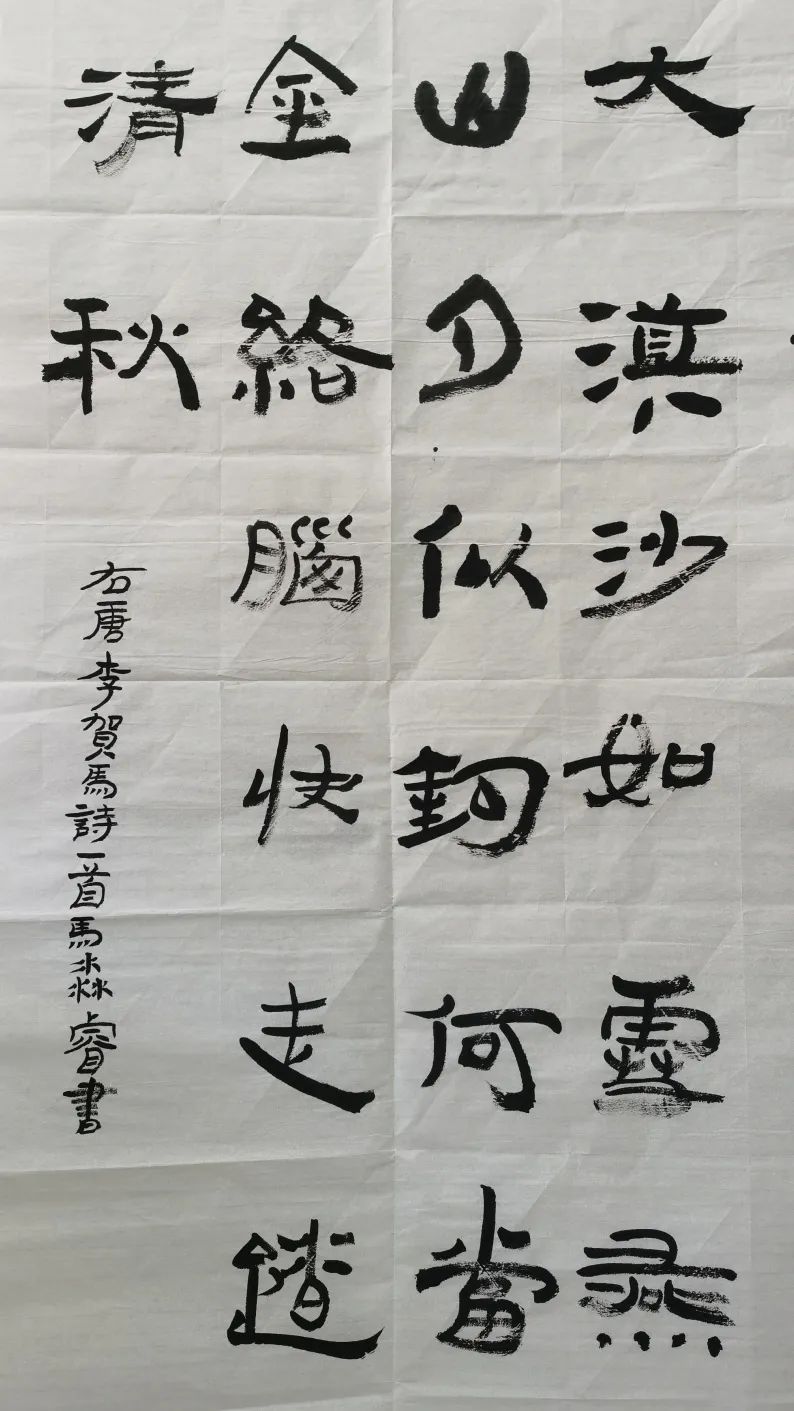 大漠沙如雪燕
山月似鉤何當
金絡腦快走踏
清秋
右唐李賀馬詩一首馬淼睿書